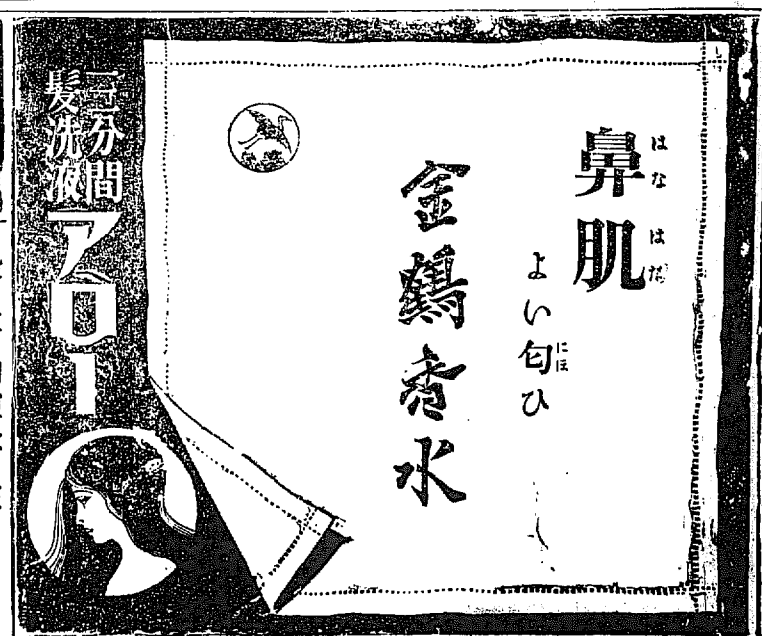 鼻肌
はなはだ
よい匂ひ
にほ
金鶴香水
三分間
髪洗液
アロー